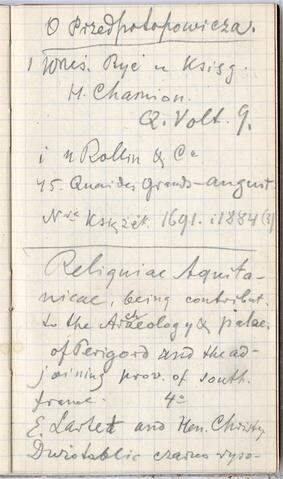 O Przedpotopowicza.
1 Wreś. Ryć u Księg.
H. Champion.
Q. Volt. 9.
i u Rollin & Co
45. Quai des Grands-August.
Nra Książek. 1691. i 1884 (3)
Reliquiae Aquita-
nicae, being contribut.
to the Archeology & palae.
of Perigord and the ad-
joining prov. of south.
france. 4o
E. Lartet and Hen. Christy